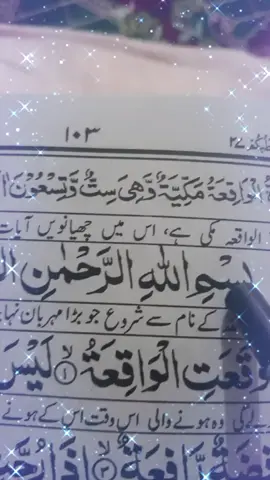 ۱۰۳
الْوَاقِعَةُ مَكِّيَّةٌ وَّهِيَ سِتٌّ وَّتِسْعُوْنَ
الواقعہ مکی ہے، اس میں چھیانویں آیات
بِسْمِ اللّٰهِ الرَّحْمٰنِ
کے نام سے شروع جو بڑا مہربان
وَقَعَتِ الْوَاقِعَةُ ۙ﴿۱﴾ لَيْسَ
وہ ہونے والی اس وقت اس کے ہونے
رَّافِعَةٌ ۙ﴿۳﴾ اِذَا